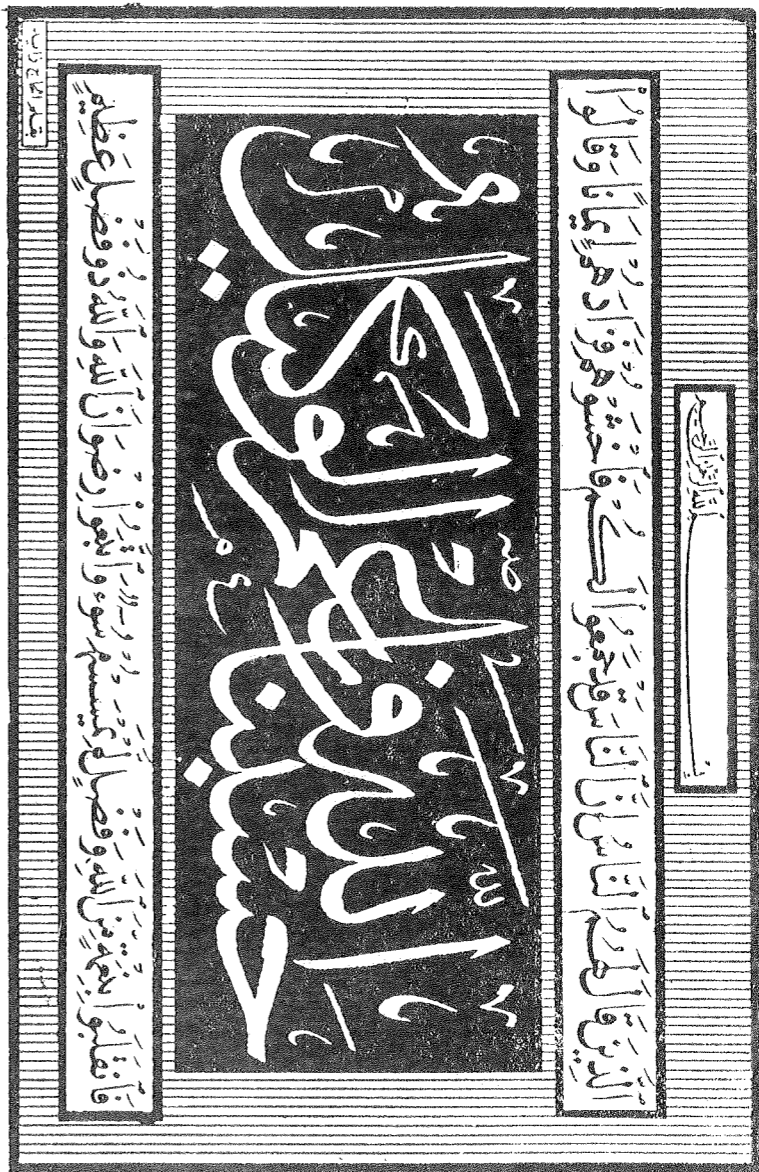 بسم الله الرحمن الرحيم
ٱلَّذِينَ قَالَ لَهُمُ ٱلنَّاسُ إِنَّ ٱلنَّاسَ قَدْ جَمَعُوا۟ لَكُمْ فَٱخْشَوْهُمْ فَزَادَهُمْ إِيمَانًا وَقَالُوا۟
حَسْبُنَا ٱللَّهُ وَنِعْمَ ٱلْوَكِيلُ
فَٱنقَلَبُوا۟ بِنِعْمَةٍ مِّنَ ٱللَّهِ وَفَضْلٍ لَّمْ يَمْسَسْهُمْ سُوٓءٌ وَٱتَّبَعُوا۟ رِضْوَانَ ٱللَّهِ وَٱللَّهُ ذُو فَضْلٍ عَظِيمٍ